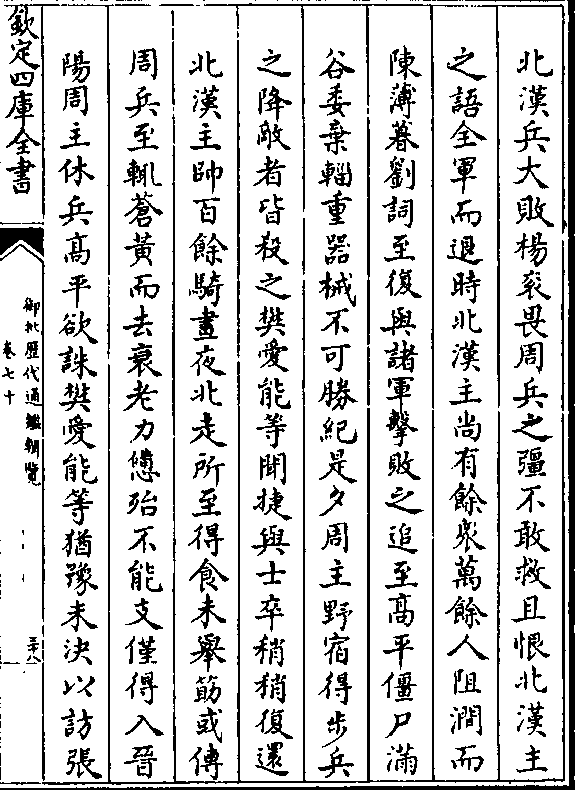 北漢兵大敗楊衮畏周兵之彊不敢救且恨北漢主
之語全軍而退時北漢主尚有餘衆萬餘人阻澗而
陳薄暮劉詞至復與諸軍擊敗之追至髙平僵尸滿
谷委棄輜重器械不可勝紀是夕周主野宿得步兵
之降敵者皆殺之樊愛能等聞捷與士卒稍稍復還
北漢主帥百餘騎晝夜北走所至得食未舉筯或傳
周兵至輒蒼黄而去衰老力憊殆不能支僅得入晉
陽周主休兵髙平欲誅樊愛能等猶豫未決以訪張
欽定四庫全書
御批歷代通鑑輯覽
卷七十
三十八